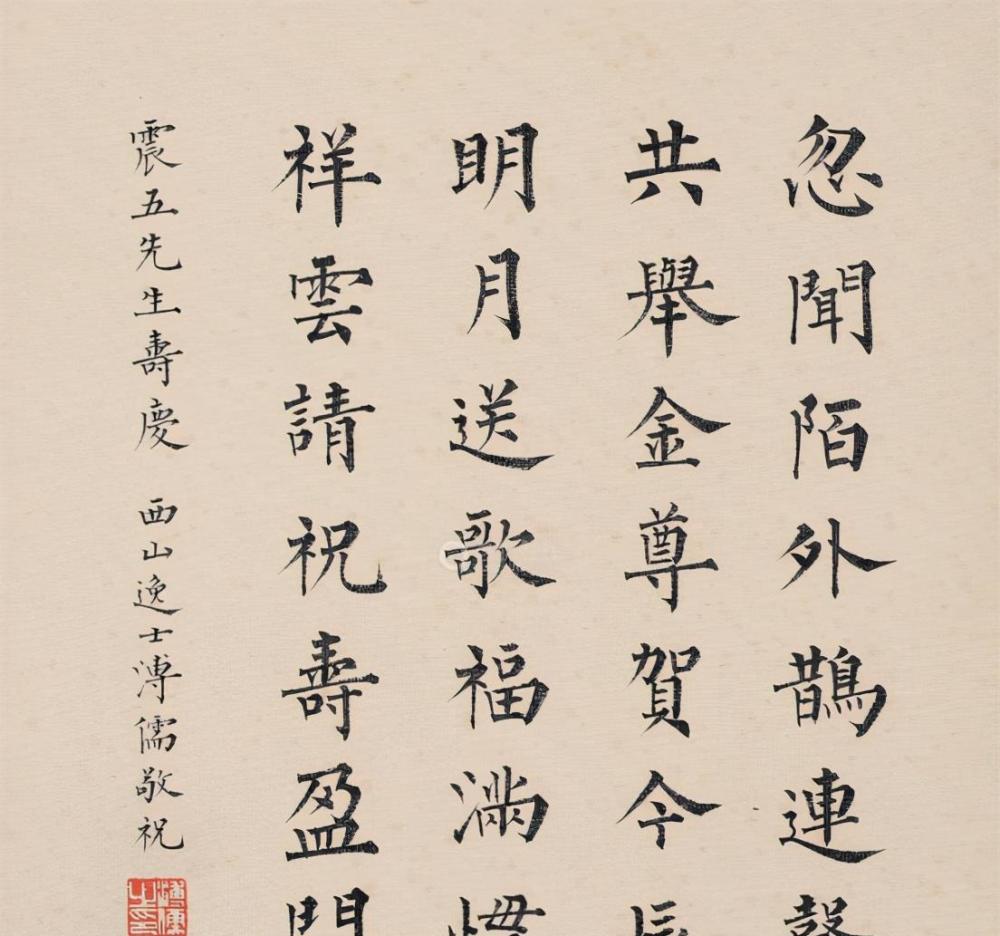 忽聞陌外鵲連聲
共舉金尊賀今辰
明月送歌福滿
祥雲請祝壽盈門
震五先生壽慶 西山逸士溥儒敬祝
溥儒之印